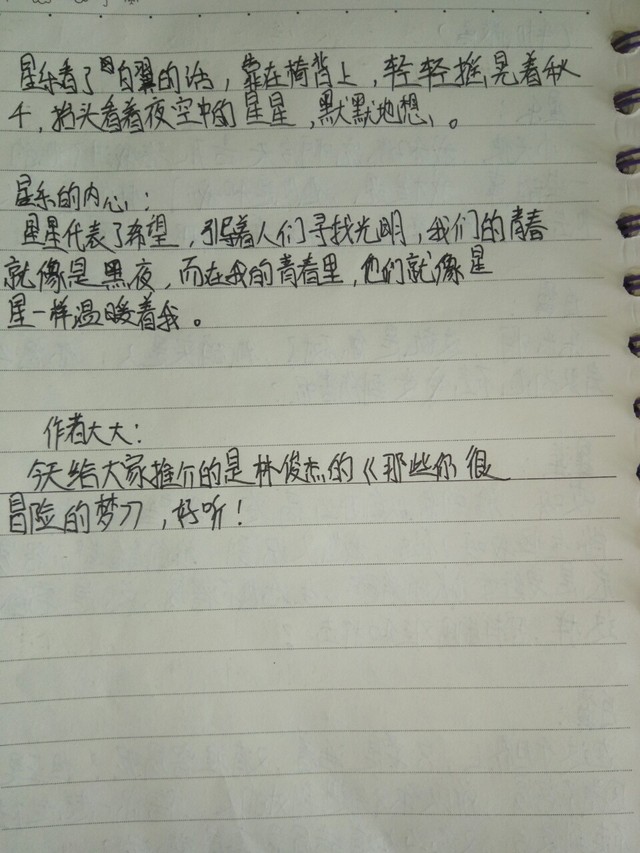 星乐看了白翼的话，靠在椅背上，轻轻摇晃着秋
千，抬头看着夜空中的星星，默默地想、。
星乐的内心：
星星代表了希望，引导着人们寻找光明，我们的青春
就像是黑夜，而在我的青春里，他们就像星
星一样温暖着我。
作者大大：
今天给大家推介的是林俊杰的《那些你很
冒险的梦》，好听！